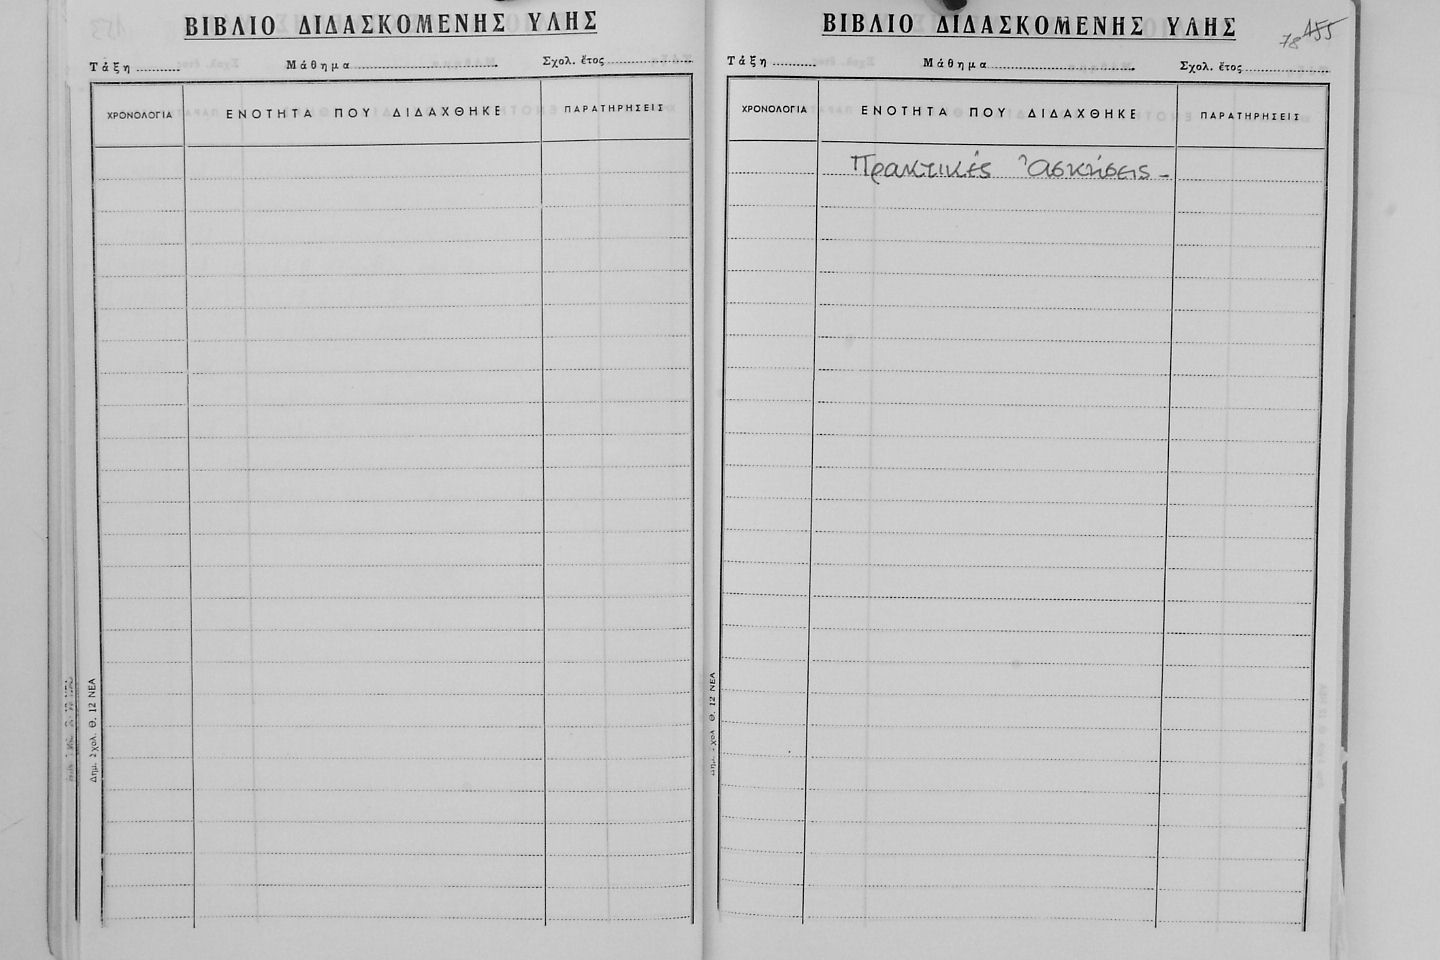 ΒΙΒΛΙΟ ΔΙΔΑΣΚΟΜΕΝΗΣ ΥΛΗΣ
Τάξη Μάθημα Σχολ. ἔτος
ΧΡΟΝΟΛΟΓΙΑ ΕΝΟΤΗΤΑ ΠΟΥ ΔΙΔΑΧΘΗΚΕ ΠΑΡΑΤΗΡΗΣΕΙΣ
Δημ. Σχολ. Θ. 12 ΝΕΑ
ΒΙΒΛΙΟ ΔΙΔΑΣΚΟΜΕΝΗΣ ΥΛΗΣ
78 155
Τάξη Μάθημα Σχολ. ἔτος
ΧΡΟΝΟΛΟΓΙΑ ΕΝΟΤΗΤΑ ΠΟΥ ΔΙΔΑΧΘΗΚΕ ΠΑΡΑΤΗΡΗΣΕΙΣ
Πρακτικές Ἀσκήσεις -
Δημ. Σχολ Θ. 12 ΝΕΑ